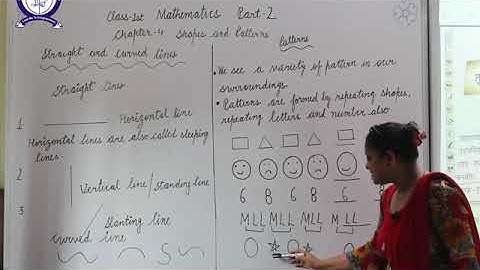 Class-1st Mathematics Part-2
Chapter-4 Shapes and Patterns
Straight and curved lines
Straight lines
1. Horizontal line
Horizontal lines are also called sleeping
lines
2. Vertical line/standing line
3. Slanting line
curved line
Patterns
We see a variety of pattern in our
surroundings.
Patterns are formed by repeating shapes,
repeating letters and number also
6 8 6 8 6
MLL MLL MLL MLL